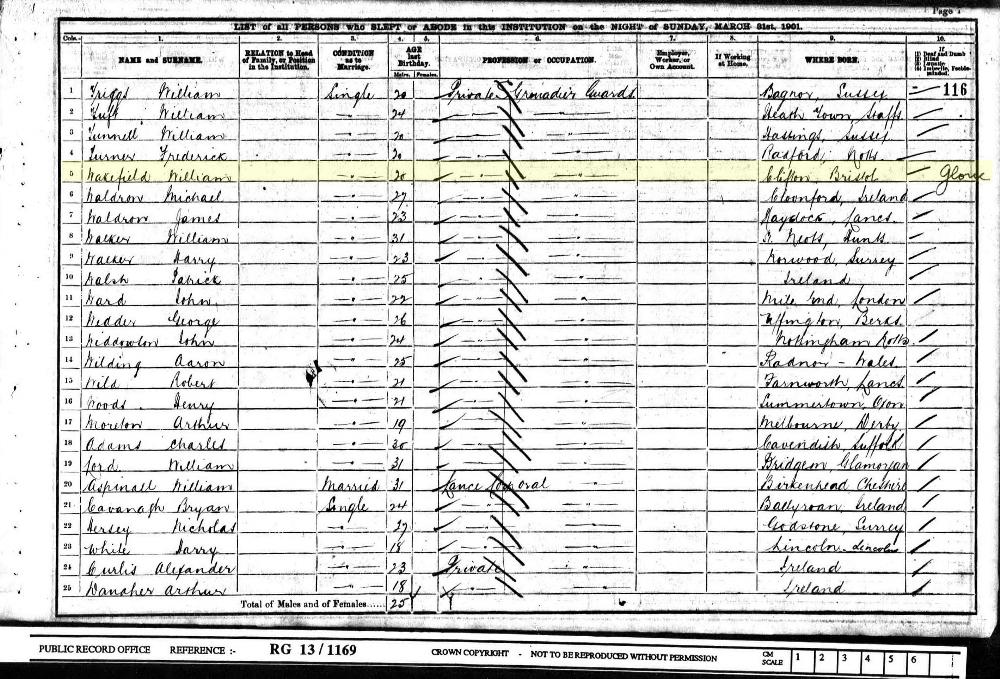 Page
LIST of all PERSONS who SLEPT or ABODE in this INSTITUTION on the NIGHT of SUNDAY, MARCH 31st, 1901.
Cols. 1. 2. 3. 4. 5. 6. 7. 8. 9. 10.
NAME and SURNAME. RELATION to Head of Family, or Position in the Institution. CONDITION as to Marriage. AGE last Birthday. Males. Females. PROFESSION or OCCUPATION. Employer, Worker, or Own Account. If Working at Home. WHERE BORN. If (1) Deaf and Dumb (2) Blind (3) Lunatic (4) Imbecile, Feeble-minded.
1 Triggs William Single 20 Private Grenadier Guards Bagnor, Sussex 116
2 Tuft William " 24 " " Heath Town, Staffs
3 Tunnell William " 20 " " Hastings, Sussex
4 Turner Frederick " 20 " " Radford, Notts
5 Wakefield William " 20 " " Clifton, Bristol Glouc
6 Waldron Michael " 27 " " Ireland
7 Waldron James " 23 " " Haydock, Lancs
8 Walker William " 31 " " St. Neots, Hunts
9 Walker Harry " 23 " " Norwood, Surrey
10 Walsh Patrick " 25 " " Ireland
11 Ward John " 22 " " Mile End, London
12 Wedder George " 26 " " Uffington, Berks
13 Widdowson John " 24 " " Nottingham Notts
14 Wilding Aaron " 25 " " Radnor - Wales
15 Wild Robert " 21 " " Farnworth, Lancs
16 Woods Henry " 21 " " Summertown, Oxon
17 Moreton Arthur " 19 " " Melbourne, Derby
18 Adams Charles " 20 " " Cavendish, Suffolk
19 Ford William " 31 " " Glamorgan
20 Aspinall William Married 31 Lance Corporal " Birkenhead Cheshire
21 Cavanagh Bryan Single 24 " " Ballyroan, Ireland
22 Hersey Nicholas " 27 " " Godstone Surrey
23 White Harry " 18 " " Lincoln - Lincolns
24 Curtis Alexander " 23 Private " Ireland
25 Danaher Arthur " 18 " " Ireland
Total of Males and of Females...... 25
PUBLIC RECORD OFFICE REFERENCE :- RG 13/1169 CROWN COPYRIGHT - NOT TO BE REPRODUCED WITHOUT PERMISSION CM SCALE 1 2 3 4 5 6